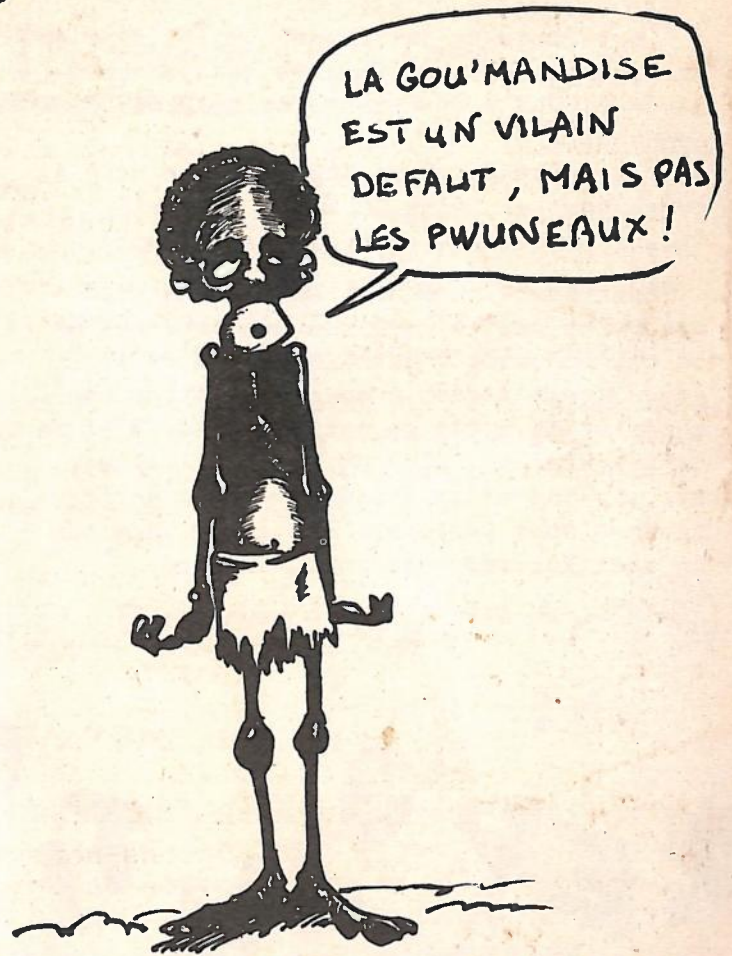 LA GOU'MANDISE
EST UN VILAIN
DEFAUT, MAIS PAS
LES PWUNEAUX !